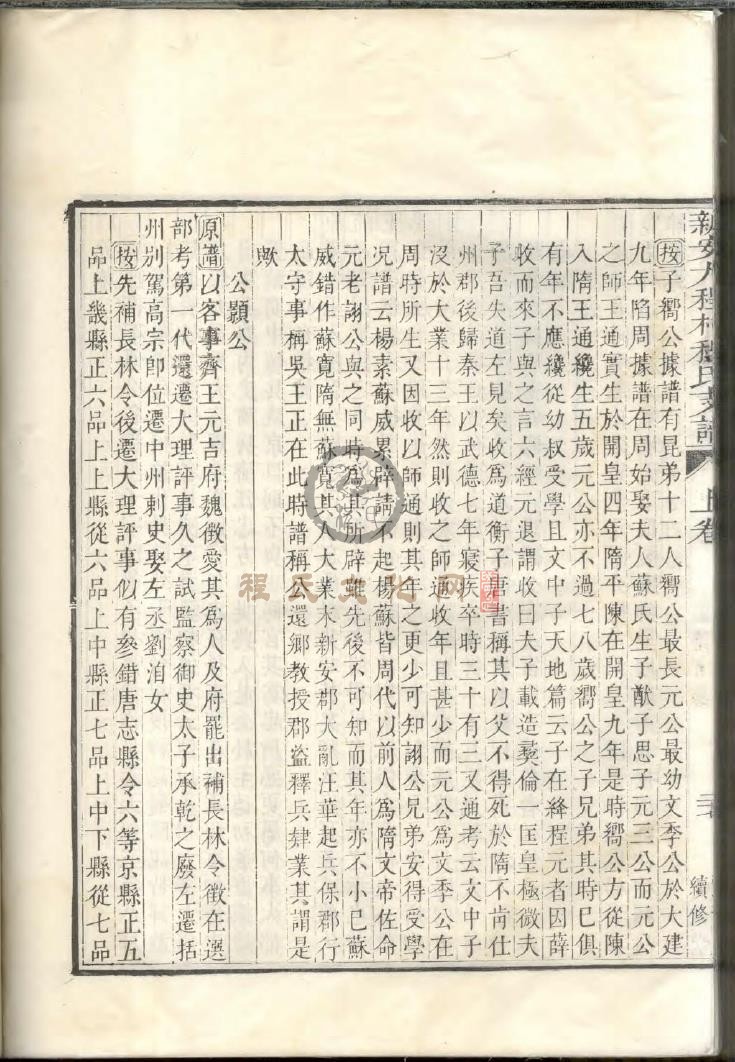 新安大程村程氏支譜
上卷
續修
按子嚮公據譜有昆弟十二人嚮公最長元公最幼文季公於大建
九年陷周據譜在周始娶夫人蘇氏生子猷子思子元三公而元公
之師王通實生於開皇四年隋平陳在開皇九年是時嚮公方從陳
入隋王通纔生五歲元公亦不過七八歲嚮公之子兄弟其時巳俱
有年不應纔從幼叔受學且文中子天地篇云子在絳程元者因薛
收而來子與之言六經元退謂收曰夫子載造彝倫一匡皇極微夫
子吾失道左見矣收為道衡子唐書稱其以父不得死於隋不肯仕
州郡後歸秦王以武德七年寢疾卒時三十有三又通考云文中子
沒於大業十三年然則收之師通收年且甚少而元公為文季公在
周時所生又因收以師通則其年之更少可知詡公兄弟安得受學
况譜云楊素蘇威累辟請不起楊蘇皆周代以前人為隋文帝佐命
元老詡公與之同時為其所辟雖先後不可知而其年亦不小巳蘇
威錯作蘇寬隋無蘇寬其人大業末新安郡大亂汪華起兵保郡行
太守事稱吳王正在此時譜稱公還鄉教授郡盜釋兵肄業其謂是
歟
公顥公
原譜以客事齊王元吉府魏徵愛其為人及府罷出補長林令徵在選
部考第一代還遷大理評事久之試監察御史太子承乾之廢左遷括
州別駕高宗即位遷中州刺史娶左丞劉洎女
按先補長林令後遷大理評事似有參錯唐志縣令六等京縣正五
品上畿縣正六品上上縣從六品上中縣正七品上中下縣從七品
程氏文化网